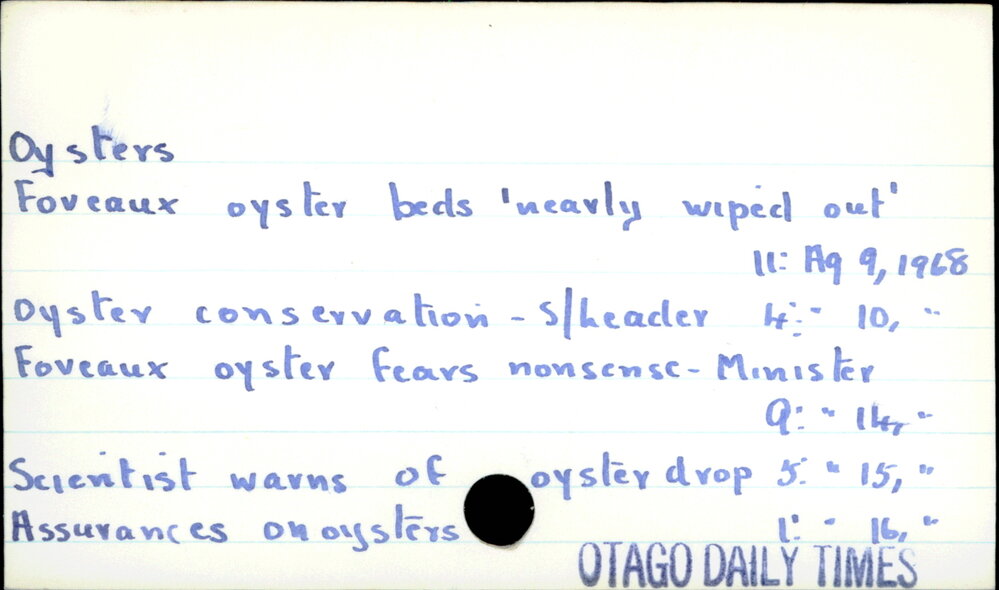 Oysters
Foveaux oyster beds 'nearly wiped out'
11: Ag 9, 1968
Oyster conservation - S/header 4: " 10, "
Foveaux oyster fears nonsense - Minister
9: " 14, "
Scientist warns of oyster drop 5: " 15, "
Assurances on oysters 1: " 16, "
OTAGO DAILY TIMES